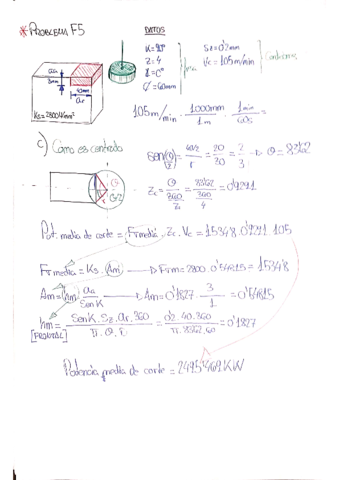 * PROBLEMA F5
DATOS
K=90°
Z=4
λ=0°
Ø=60mm
Sz=0'2mm
Vc=105m/min
aa
3mm
40mm
ar
Ks=2800N/mm²
105m/min · 1000mm/1m · 1min/60s =
c) Como es centrado
sen(θ/2) = ar/2/r = 20/30 = 2/3 → θ = 83'62
Zc = θ/360/Z = 83'62/360/4 = 0'9291
θ
θ/2
r
Pot. media de corte = Fmedia · Zc · Vc = 1534'8 · 0'9291 · 105
Fmedia = Ks · Am → Fm = 2800 · 0'54815 = 1534'8
Am = hm · aa/senK → Am = 0'1827 · 3/1 = 0'54815
hm = SenK · Sz · ar · 360/π · θ · Ø = 0'2 · 40 · 360/π · 83'62 · 60 = 0'1827
[FRONTAL]
Potencia media de corte = 2495'469 KW